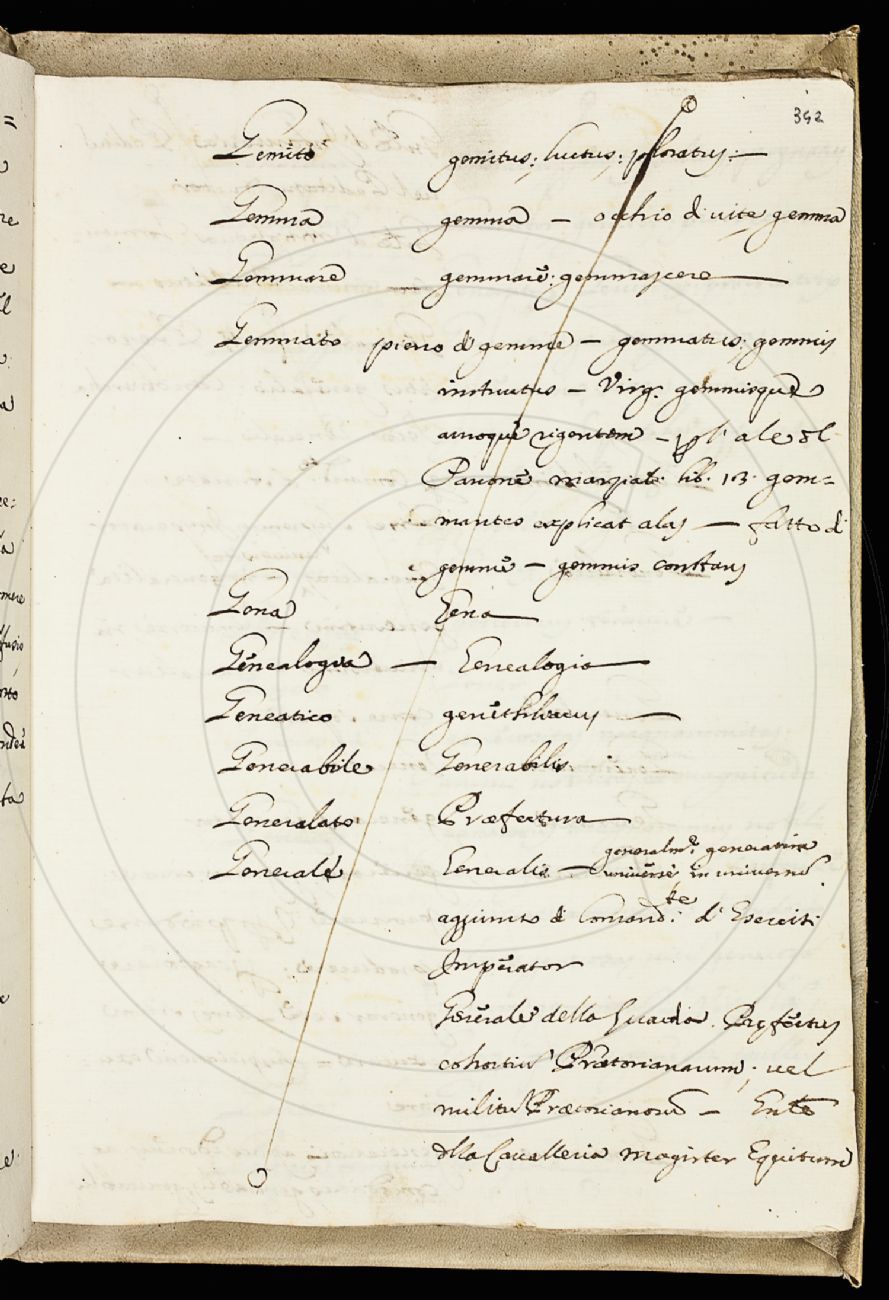 392
Gemito gemitus; luctus; ploratus; —
Gemma gemma — occhio di vite gemma
Gemmare gemmare; gemmascere —
Gemmato pieno di gemme — gemmatus; gemmis
instructus — Virg. gemmisque
auroque rigentem —
Pavone marziale lib. 13. gem=
manteo explicat alas — fatto di
gemme — gemmis constans
Gena Gena —
Genealogia — Genealogia —
Geneatico genethliacus —
Generabile Generabilis
Generalato Præfectura —
Generale Generalis — generalm.e generatim
universè in universu
aggiunto di Comand.te d'Eserciti
Imperator
Generale della Guardia. Præfectus
cohortiu Prætorianarum; vel
militu Prætorianoru —
della Cavalleria Magister Equitum